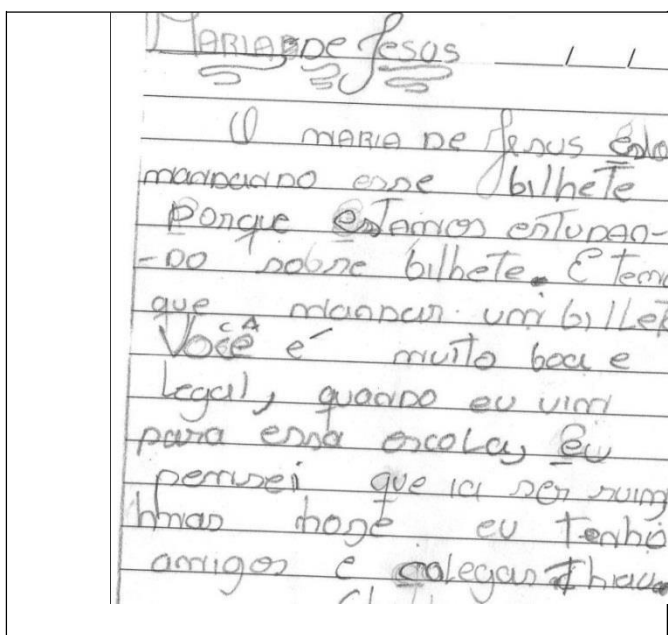 MARIA DE Jesus __/__/
O MARIA DE Jesus esto
mandando esse bilhete
Porque estamos estudan-
-do sobre bilhete. E temo
que mandar um billet
Você é muito boa e
Legal, quando eu vim
para essa escola, eu
pensei que ia ser ruim
mas hoge eu tenho
amigos e colegas